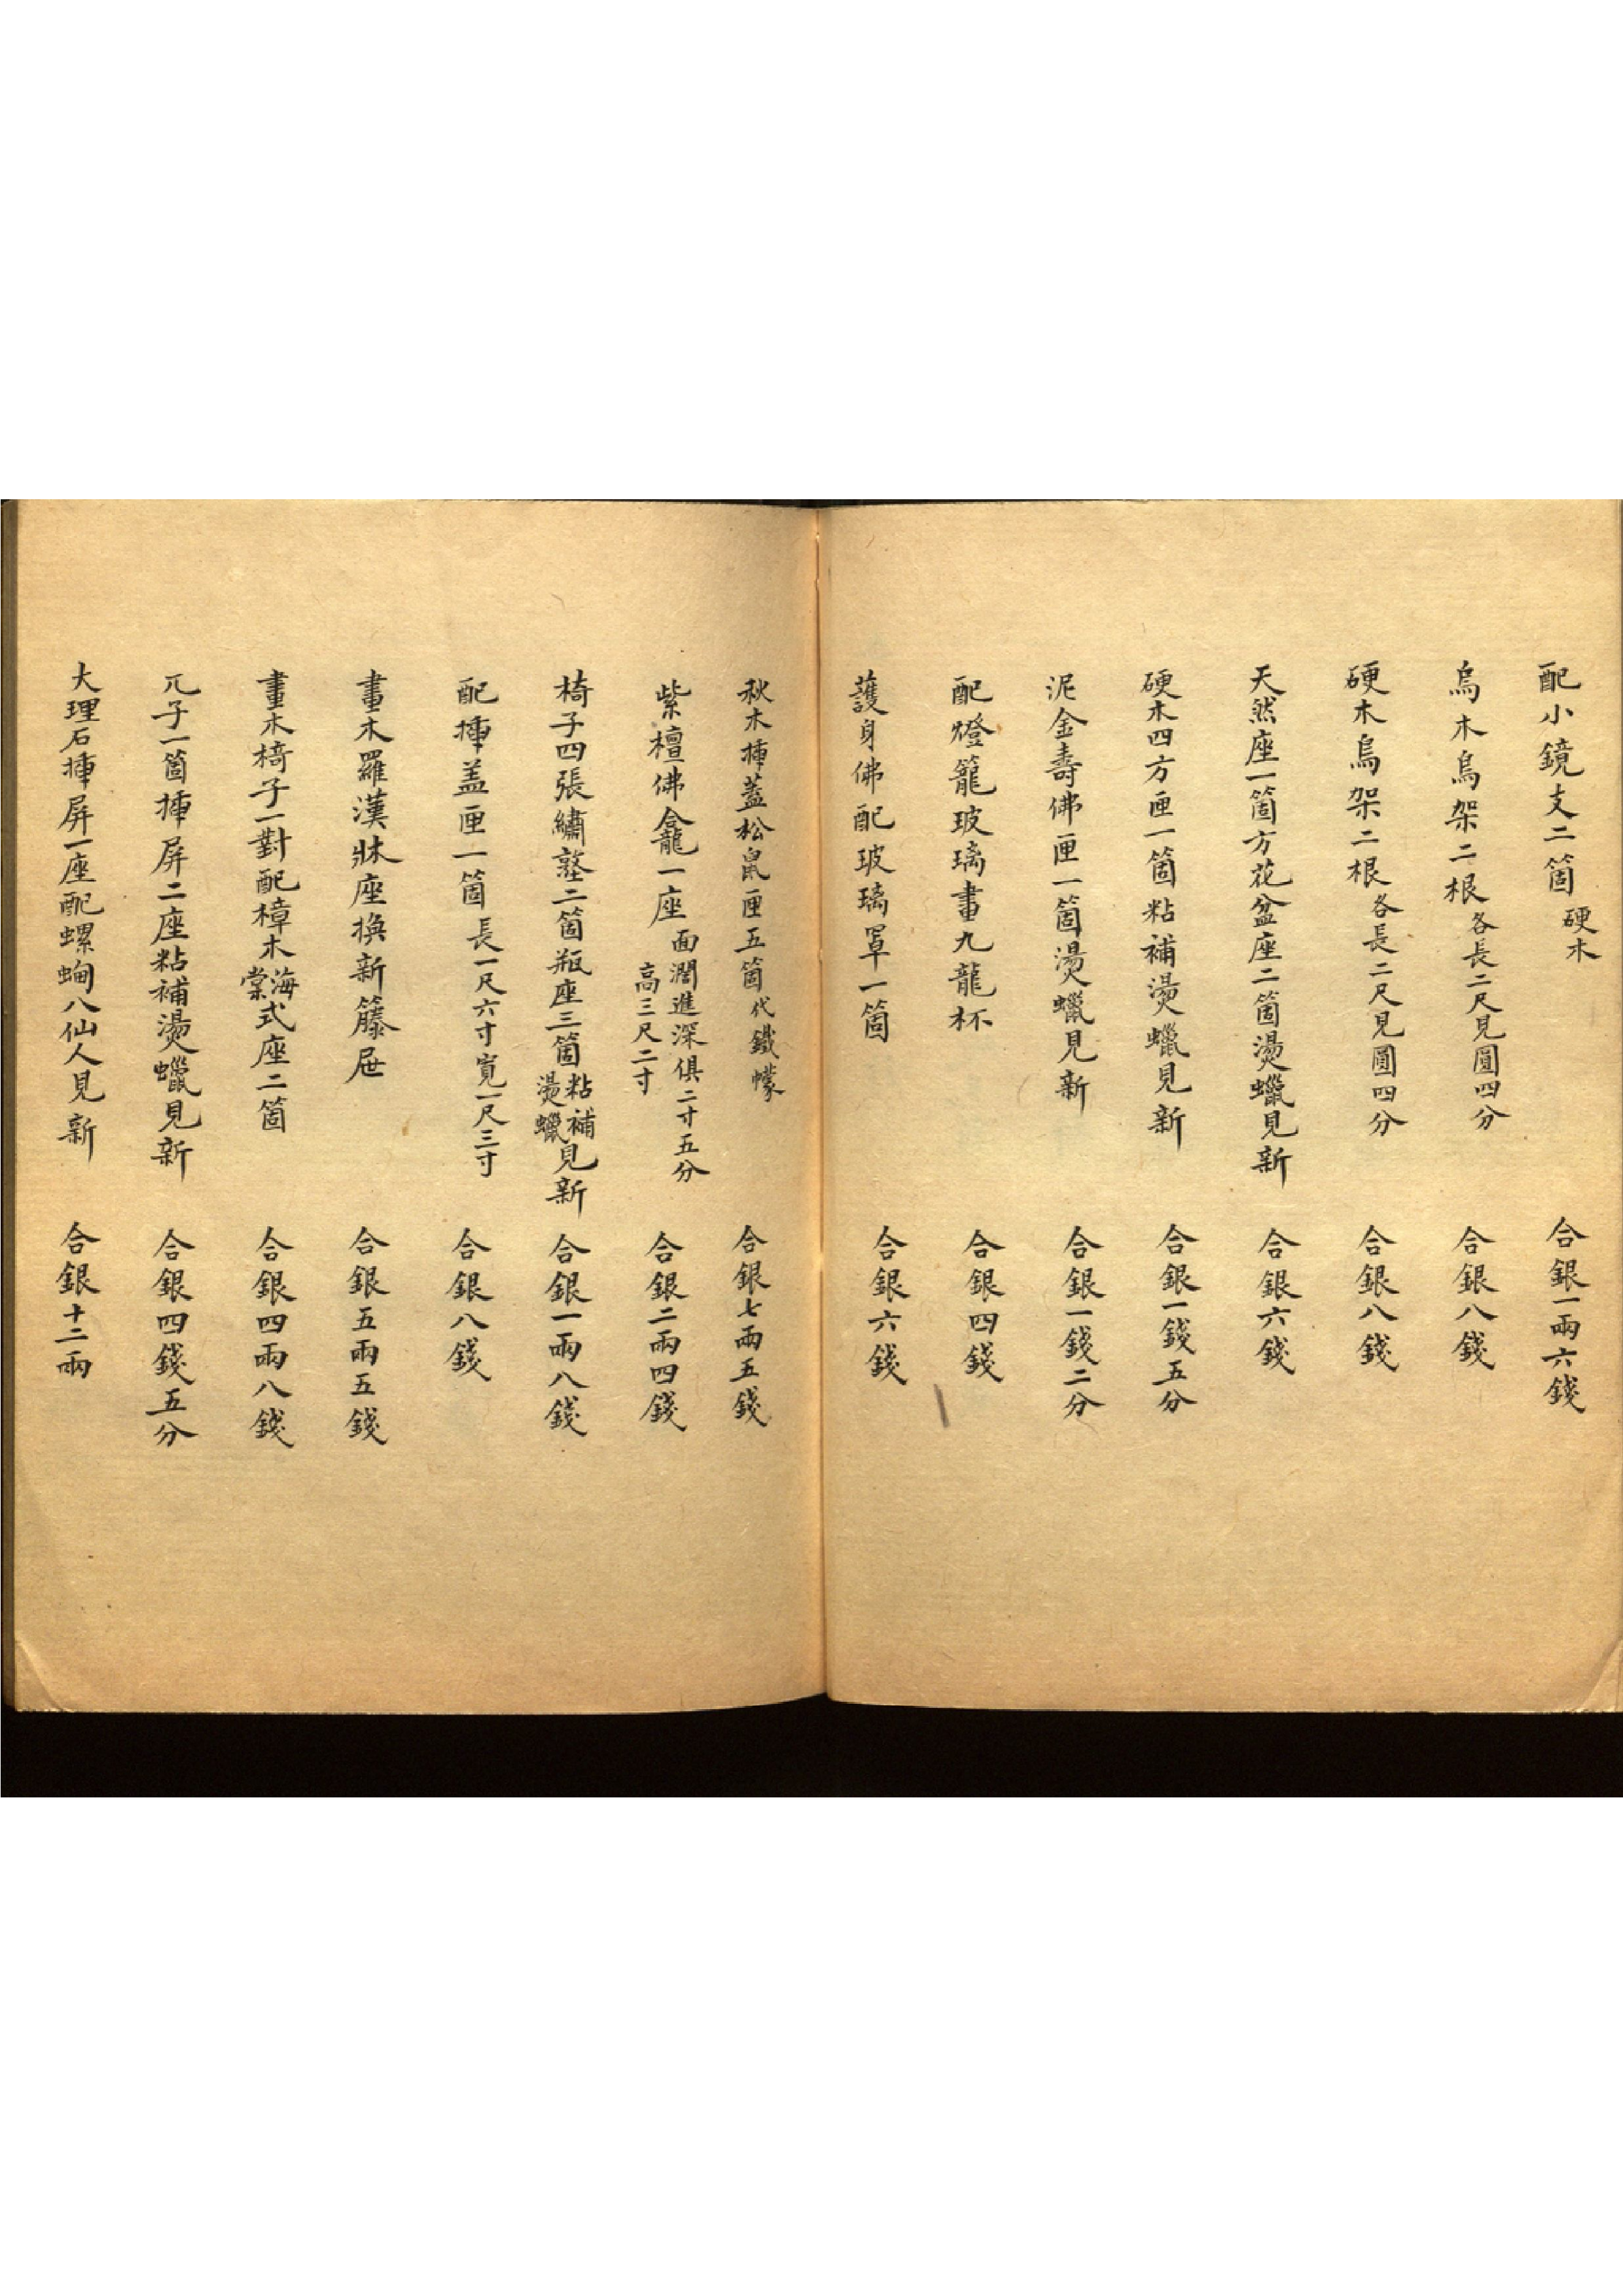 配小鏡支二箇硬木 合銀一兩六錢
烏木鳥架二根各長二尺見圓四分 合銀八錢
硬木鳥架二根各長二尺見圓四分 合銀八錢
天然座一箇方花盆座二箇燙蠟見新 合銀六錢
硬木四方匣一箇粘補燙蠟見新 合銀一錢五分
泥金壽佛匣一箇燙蠟見新 合銀一錢二分
配燈籠玻璃畫九龍杯 合銀四錢
護身佛配玻璃罩一箇 合銀六錢
秋木揷蓋松鼠匣五箇代鐵幪 合銀七兩五錢
紫檀佛龕一座面濶進深俱二寸五分高三尺二寸 合銀二兩四錢
椅子四張繡墪二箇瓶座三箇粘補燙蠟見新 合銀一兩八錢
配揷盖匣一箇長一尺六寸寬一尺三寸 合銀八錢
畫木羅漢牀座換新籐屉 合銀五兩五錢
畫木椅子一對配樟木海棠式座二箇 合銀四兩八錢
兀子一箇揷屏二座粘補燙蠟見新 合銀四錢五分
大理石揷屏一座配螺蜔八仙人見新 合銀十二兩